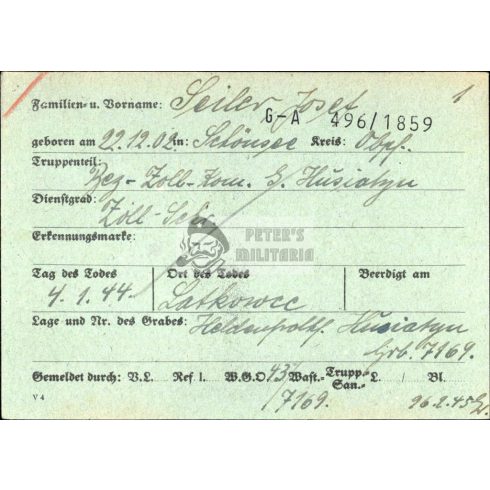 Familien- u. Vorname: Seiler Josef 1
G-A 496/1859
geboren am 22.12.02 in: Schönsee Kreis: Obpf.
Truppenteil: Bez-Zoll-Kom. G. Husiatyn
Dienstgrad: Zoll-Sekr.
PETER'S MILITARIA
Erkennungsmarke:
Tag des Todes Ort des Todes Beerdigt am
4.1.44. Latkowce
Lage und Nr. des Grabes: Heldenfrdhf. Husiatyn
Grb. 7169.
Gemeldet durch: V.L. Ref I. W.G.O 437 Wast. Trupp.- San.- L. Bl.
V 4 7169. 96.2.45